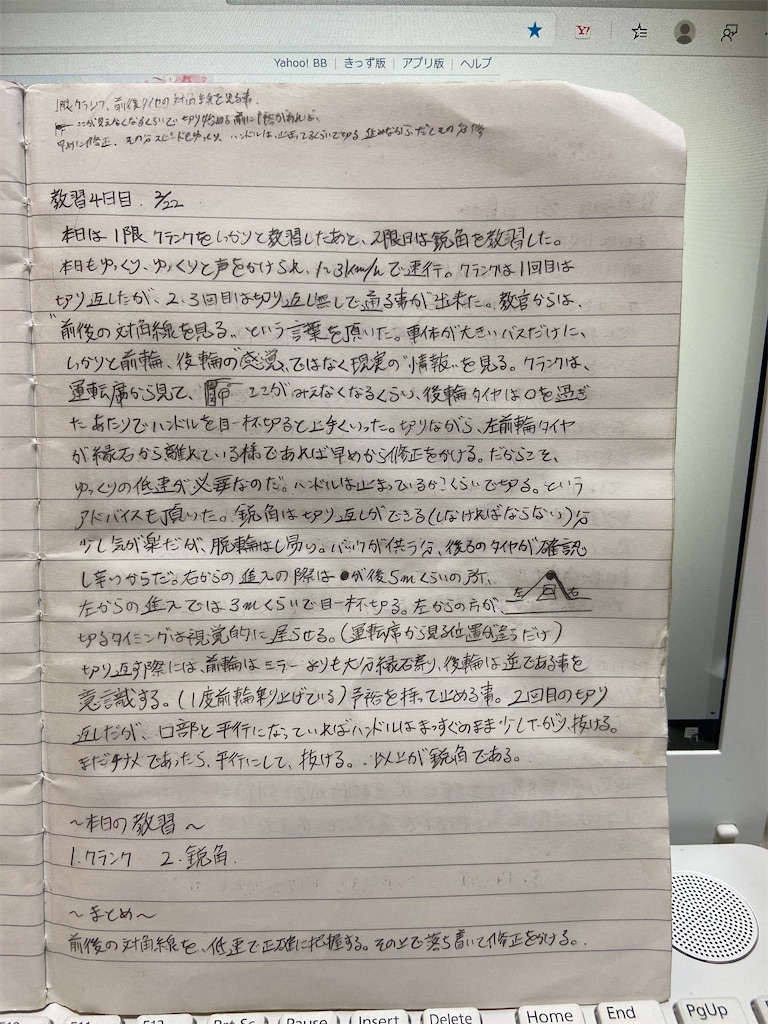 Yahoo! BB | きっず版 | アプリ版 | ヘルプ
1限クランク、前後タイヤの対角線を見る事。
ここが見えなくなるくらいで切り始める前に予裕があれば、
早めに修正、その分スピードをゆっくり、ハンドルは、止まってるくらいで切る
教習4日目. 3/22
本日は1限クランクをしっかりと教習したあと、2限目は鋭角を教習した。
本日もゆっくり、ゆっくりと声をかけられ、1~3km/hで速行。クランクは1回目は
切り返したが、2.3回目は切り返し無しで通る事が出来た。教官からは、
"前後の対角線を見る"という言葉を頂いた。車体が大きいバスだけに、
しっかりと前輪、後輪の"感覚"ではなく現実の"情報"を見る。クランクは、
運転席から見て、ここがみえなくなるくらい、後輪タイヤは○を過ぎ
たあたりでハンドルを目一杯切ると上手くいった。切りながら、左前輪タイヤ
が縁石から離れている様であれば早めから修正をかける。だからこそ、
ゆっくりの低速が必要なのだ。ハンドルは止まっているかくらいで切る。という
アドバイスも頂いた。鋭角は切り返しができる(しなければならない)分
少し気が楽だが、脱輪はし易い。バックが伴う分、後ろのタイヤが確認
し辛いからだ。右からの進入の際は●が後5mくらいの所、
左からの進入では3mくらいで目一杯切る。左からの方が、
左 右
切るタイミングは視覚的に遅らせる。(運転席から見る位置が違うだけ)
切り返す際には、前輪はミラーよりも大分縁石寄り、後輪は逆である事を
意識する。(1度前輪乗り上げている)予裕を持って止める事。2回目の切り
返しだが、口部と平行になっていればハンドルはまっすぐのまま少し下がり、抜ける。
まだナナメであったら、平行にして、抜ける。以上が鋭角である。
~本日の教習~
1.クランク 2.鋭角.
~まとめ~
前後の対角線を、低速で正確に把握する。その上で落ち着いて修正をかける。
F10 F11 F12 Prt Sc Pause Insert Delete Home End PgUp